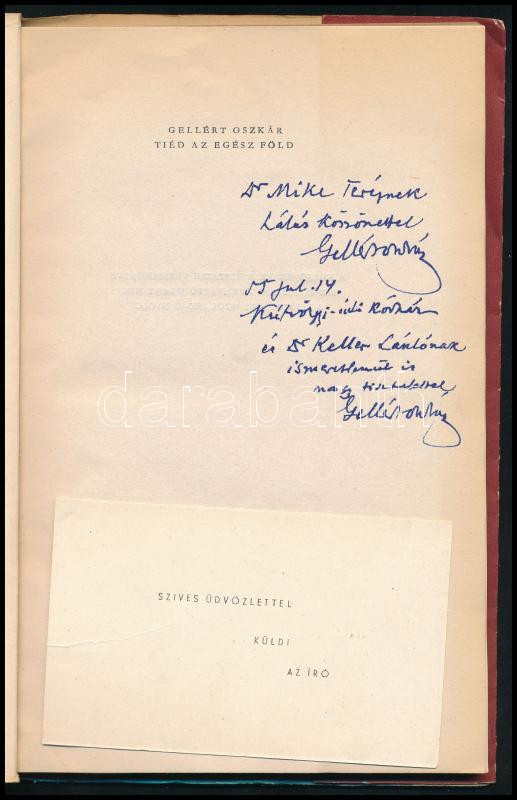 GELLÉRT OSZKÁR
TIÉD AZ EGÉSZ FÖLD
Dr Mike Teréznek
hálás köszönettel
Gellért Oszkár
55 jul. 14.
Kútvölgyi-úti kórház
és Dr Keller Lászlónak
ismeretlenül is
nagy tisztelettel
Gellért Oszkár
darabanth
SZIVES ÜDVÖZLETTEL
KÜLDI
AZ ÍRÓ